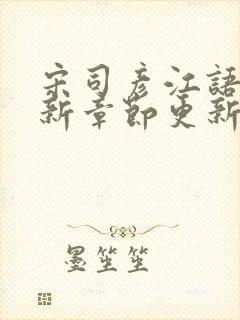 宋司彦江語
新章節更新
墨笙笙